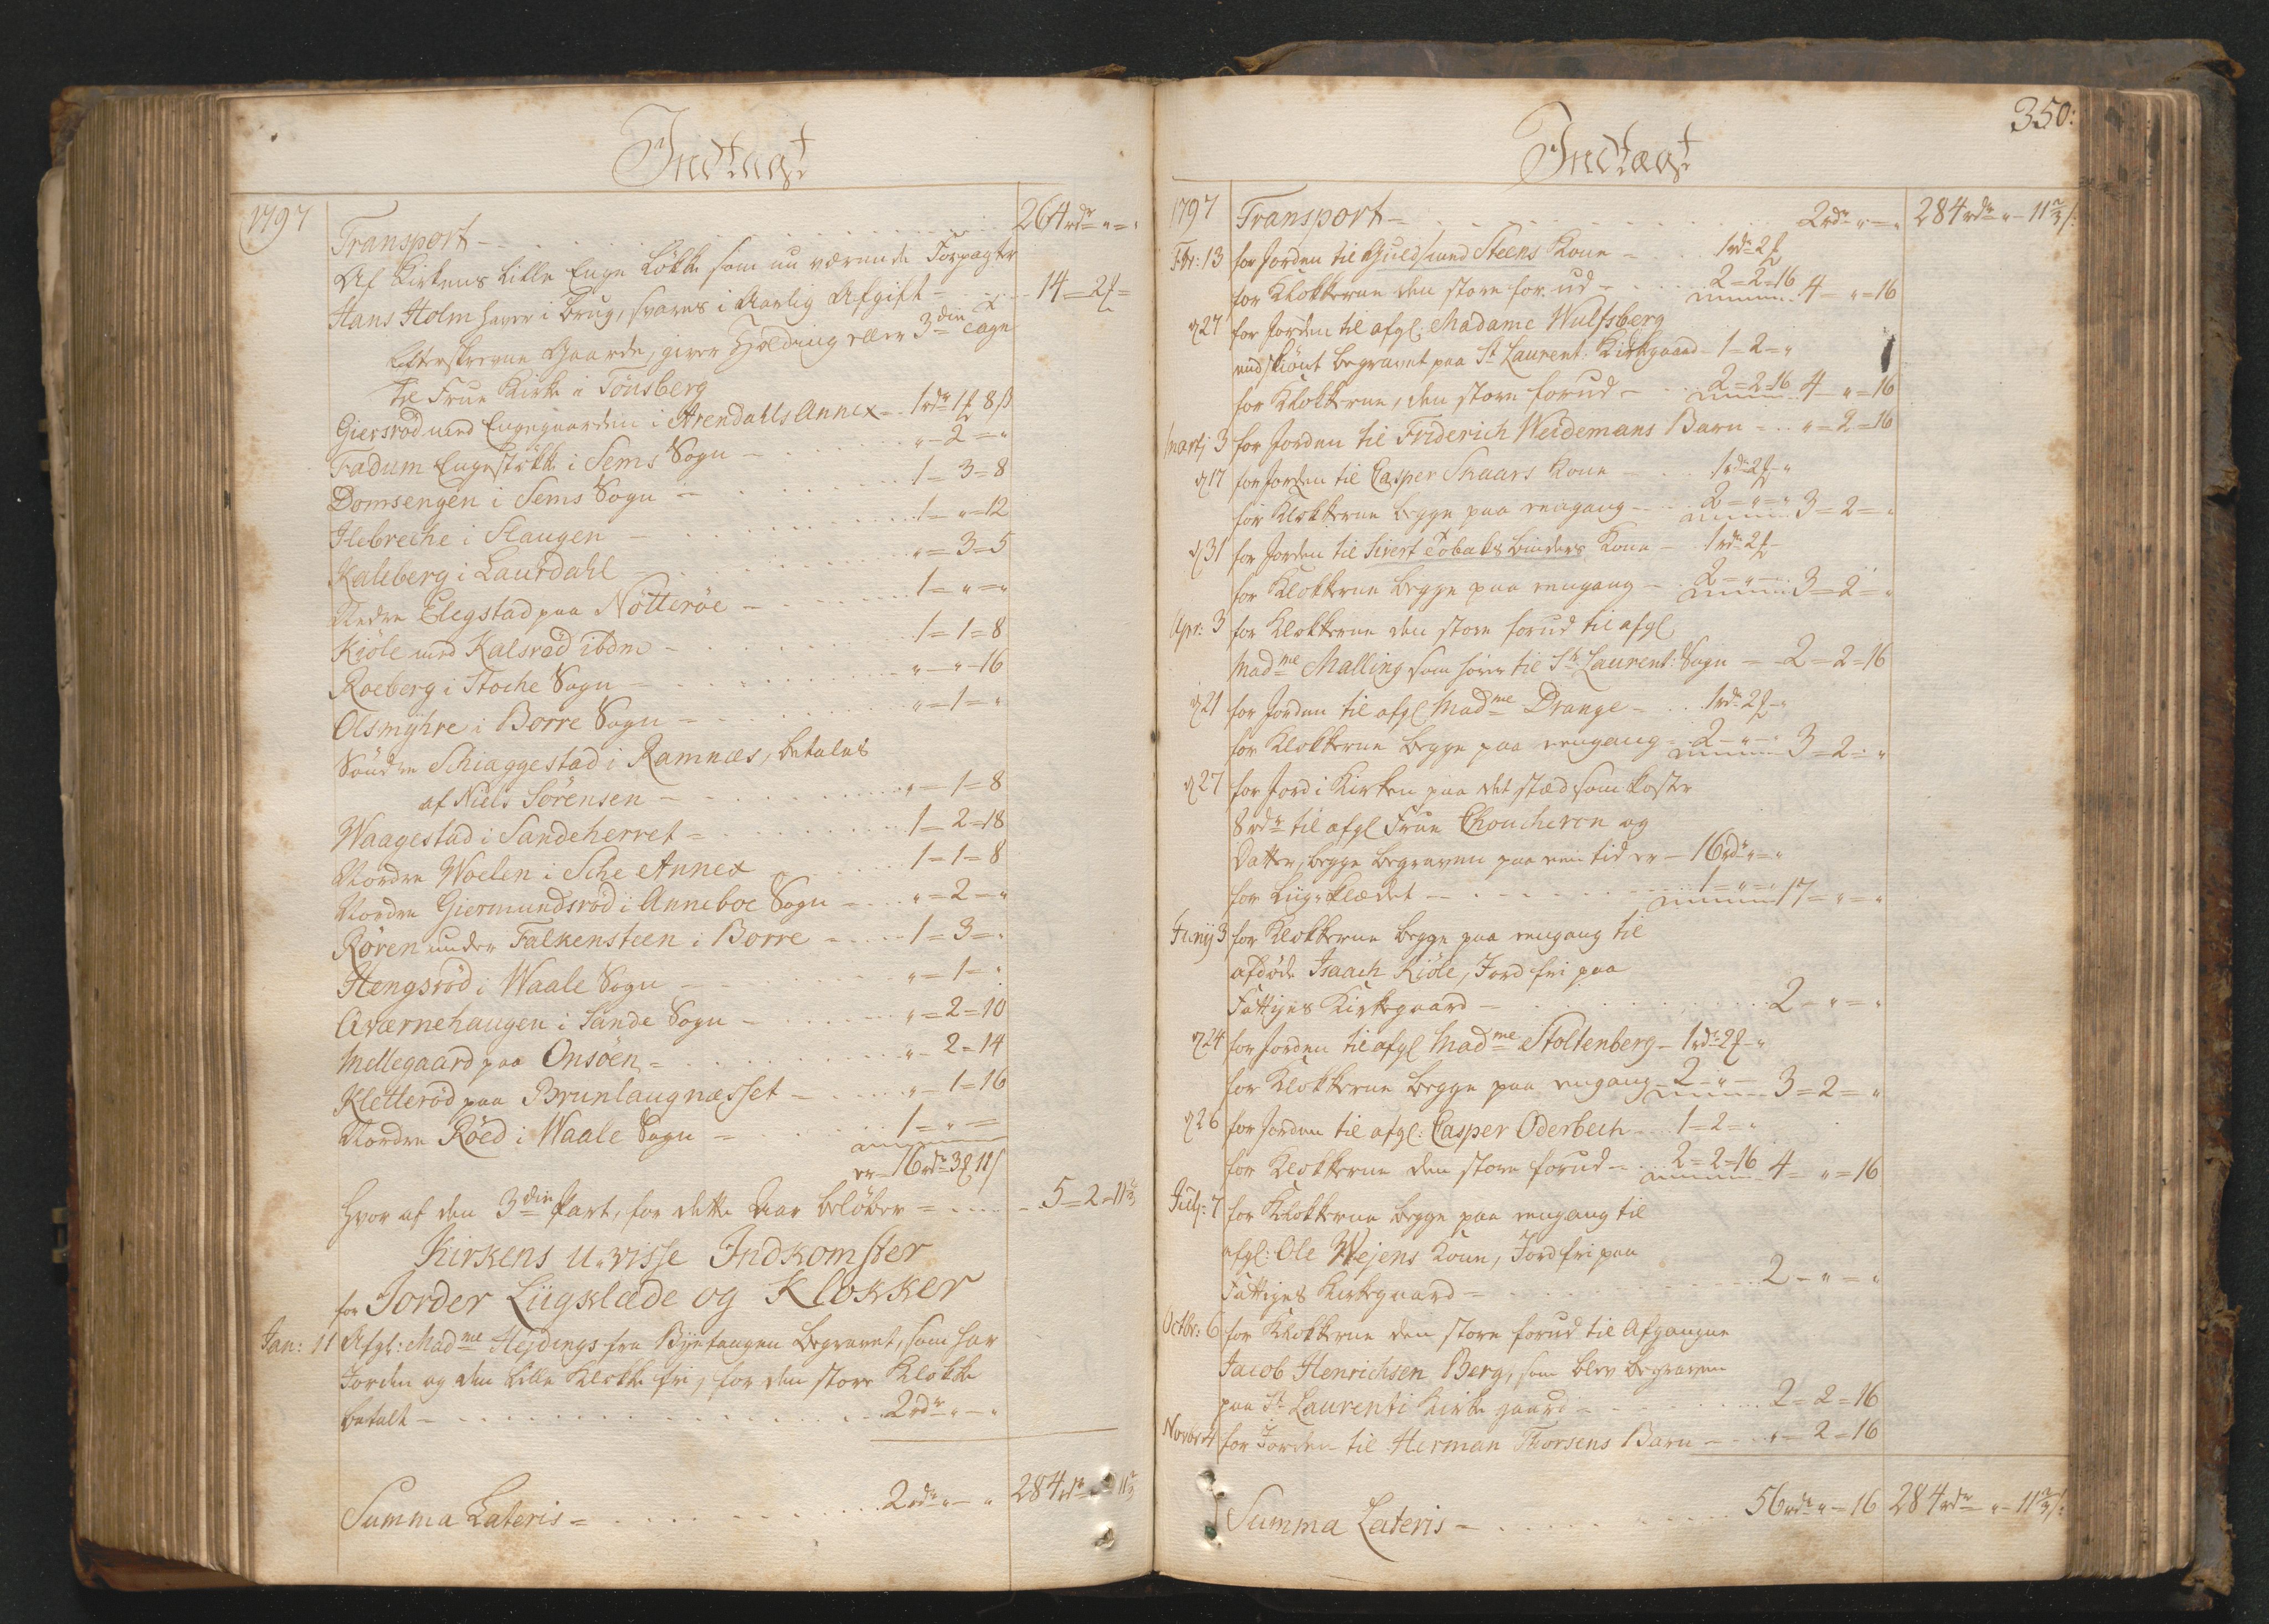 Indtægt
1797
Transport - 264 rdr " = "
Af Kirkens Lille Enge Løkke som nu værende Forpagter
Hans Holm haver i brug, svares i Aarlig Afgift - 14 = 2 =
Efterskrevne Gaarde, giver Holding eller 3die Tage
til Frue Kirke i Tönsberg
Giersröd med Engegaarden i Arendahls Annex - 1 rdr 1 8 ß
Fadum Engestÿkke i Sems Sogn - " - 2 = "
Domsengen i Sems Sogn - 1 = 3 = 8
Ilebreche i Slaugen - 1 = " = 12
Kaleberg i Laurdahl - " = 3 = 5
Nedre Elegstad paa Nötteröe - 1 = " = "
Kiöle med Kalsröd ibdm - 1 = 1 = 8
Roeberg i Stoche Sogn - " - " - 16
Olsmÿhre i Borre Sogn - " = 1 = "
Söndre Schiaggestad i Ramnæs, betales
af Niels Sörensen - " = 1 = 8
Waagestad i Sandeherret - 1 = 2 = 18
Nordre Woelen i Sche Annex - 1 = 1 = 8
Nordre Giermundsröd i Anneboe Sogn - " = 2 = "
Rören under Falkensteen i Borre - 1 = 3 = "
Hengsröd i Waale Sogn - " = 1 = "
Qværnehaugen i Sande Sogn - " = 2 = 10
Mellegaard paa Onsöen - " - 2 = 14
Kletteröd paa Brunlaugnæsset - " - 1 = 16
Nordre Röed i Waale Sogn - 1 = " =
er 16 rdr 3 11 ß
Hvor af den 3die Part, for dette Aar beløber - 5 = 2 = 11 2/3
Kirkens u-visse Indkomster
for Jorder Liigklæde og Klokker
Jan: 11 Afgl: Madme Hejdings fra Bÿefaugen begravet, som har
Jorden og den lille Klokke fri, for den store Klokke
betalt - 2 rdr " - "
Summa Lateris - 2 rdr " - " 284 rdr " 11 2/3
350:
Indtægt
1797 Transport - 2 rdr " = " 284 rdr " - 11 2/3 ß:
Febr: 13 for Jorden til Guldsmed Steens Kone - 1 rdr 2
for Klokkerne den store forud - 2 = 2 = 16 4 = " = 16
d 27 for Jorden til afgl: Madame Wulfsberg
endskiönt begravet paa St Laurent: Kirkgaard - 1 = 2 = "
for Klokkerne, den store forud - 2 = 2 = 16 4 = " = 16
Martj 3 for Jorden til Friderich Weidemans Barn - " = 2 = 16
d 17 for Jorden til Casper Skaars Kone - 1 rdr 2 - "
for Klokkerne begge paa eengang - 2 = " = " 3 = 2 = "
d 31 for Jorden til Sivert Tobaksbinders Kone - 1 rdr 2 -
for Klokkerne begge paa eengang - 2 = " = " 3 = 2 = "
Apr: 3 for Klokkerne den store forud til afgl
Madme Malling som hörer til St Laurent: Sogn - 2 = 2 = 16
d 21 for Jorden til afgl Madme Drange - 1 rdr 2 - "
for Klokkerne begge paa eengang - 2 - " - " 3 = 2 = "
d 27 for Jord i Kirken paa det stæd som koster
8 rdr til afgl Frue Choucheron og
Datter, begge begraven paa een tid er - 16 rdr " = "
for Liigklædet - 1 = " = " 17 = " = "
Junÿ 3 for Klokkerne begge paa eengang til
afdøde Isaach Kiöle, Jord fri paa
Fattiges Kirkegaard - 2 - " = "
d 24 for Jorden til afgl Madme Stoltenberg - 1 rdr 2 - "
for Klokkerne begge paa engang - 2 - " - 3 = 2 = "
d 26 for Jorden til afgl: Casper Oderbech - 1 = 2 = "
for Klokkerne den store forud - 2 = 2 = 16 4 = " = 16
Julÿ: 7 for Klokkerne begge paa eengang til
afgl: Ole Wejens Kone, Jord fri paa
Fattiges Kirkegaard - 2 - " = "
Octbr: 6 for Klokkerne den store forud til Afgangne
Jacob Henrichsen Berg, som blev begraven
paa St Laurenti Kirke gaard - 2 = 2 = 16
Novbr 4 for Jorden til Herman Thorsens Barn - " = 2 = 16
Summa Lateris - 56 rdr " = 16 284 rdr " - 11 2/3 ß: